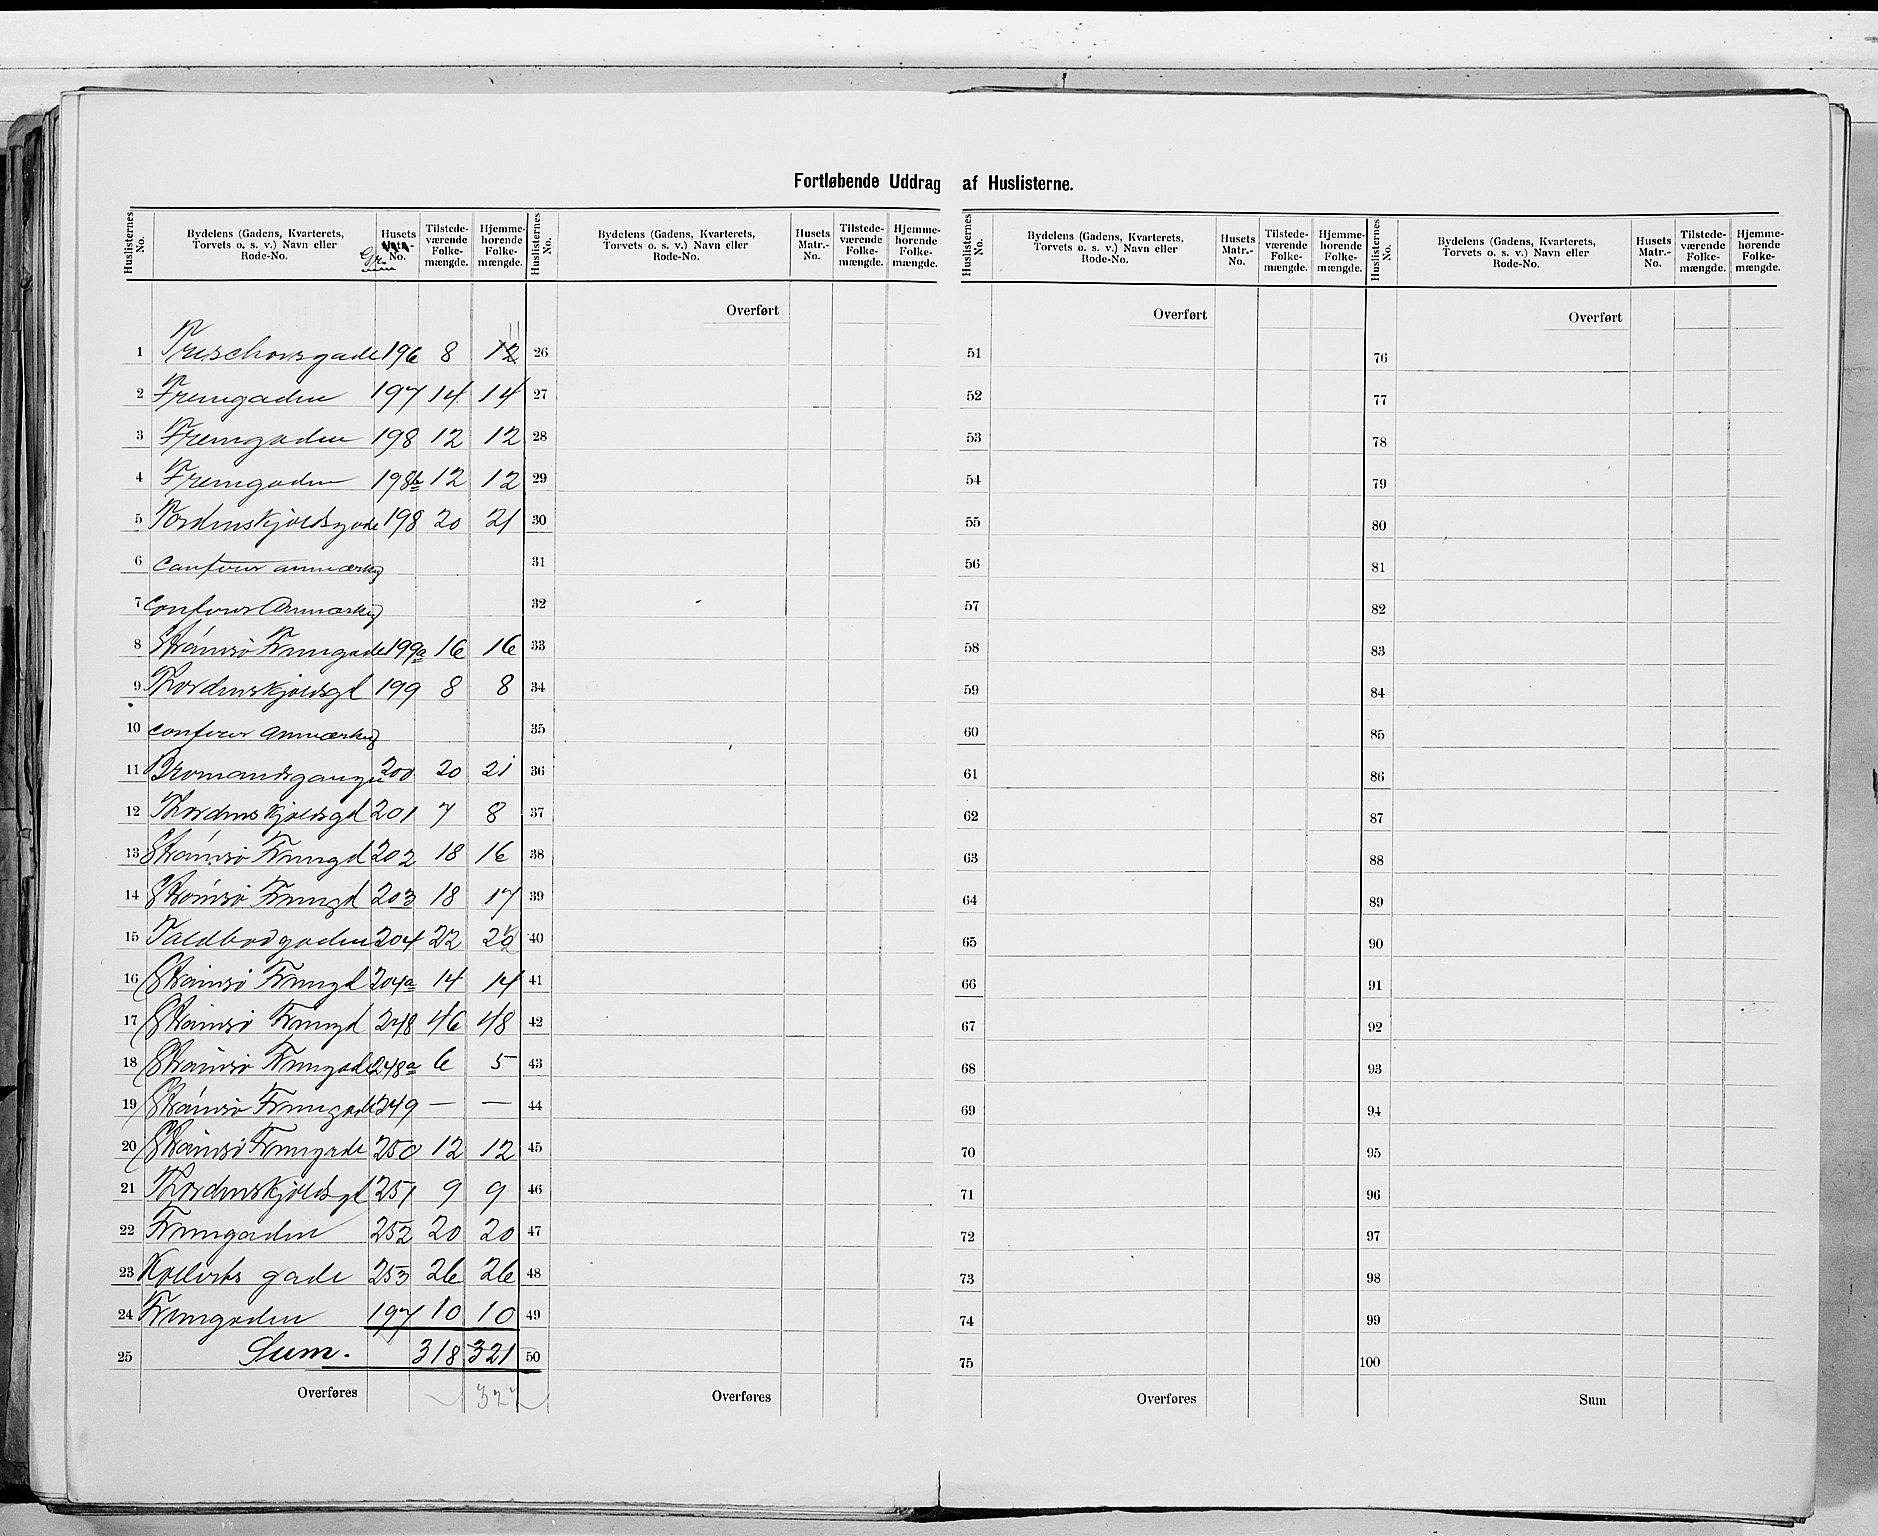 Fortløbende Uddrag af Huslisterne.
Huslisternes No. Bydelens (Gadens, Kvarterets, Torvets o. s. v.) Navn eller Rode-No. Husets Matr.-No. Gr. Tilstedeværende Folkemængde. Hjemmehørende Folkemængde.
1 Treschowsgade 196 8 12 11
2 Fremgaden 197 14 14
3 Fremgaden 198 12 12
4 Fremgaden 198b 12 12
5 Tordenskjoldsgade 198 20 21
6 conferer anmærkng
7 conferer Anmærkng
8 Strömsö Fremgade 199a 16 16
9 Thordenskjoldsgd 199 8 8
10 conferer Anmærkng
11 Bromandsgangen 200 20 21
12 Thordenskjoldsgd 201 7 8
13 Strömsö Fremgd 202 18 16
14 Strömsö Fremgd 203 18 17
15 Toldbodgaden 204 22
16 Strömsö Fremgd 204a 14 14
17 Strömsö Fremgd 248 46 48
18 Strömsö Fremgade 248a 6 5
19 Strömsö Fremgade 249 — —
20 Strömsö Fremgade 250 12 12
21 Thordenskjoldsgd 251 9 9
22 Fremgaden 252 20 20
23 gade 253 26 26
24 Fremgaden 197 10 10
25 Sum. 318 321
Overføres 322
Huslisternes No. Bydelens (Gadens, Kvarterets, Torvets o. s. v.) Navn eller Rode-No. Husets Matr.-No. Tilstedeværende Folkemængde. Hjemmehørende Folkemængde.
Overført
26
27
28
29
30
31
32
33
34
35
36
37
38
39
40
41
42
43
44
45
46
47
48
49
50
Overføres
Huslisternes No. Bydelens (Gadens, Kvarterets, Torvets o. s. v.) Navn eller Rode-No. Husets Matr.-No. Tilstedeværende Folkemængde. Hjemmehørende Folkemængde.
Overført
51
52
53
54
55
56
57
58
59
60
61
62
63
64
65
66
67
68
69
70
71
72
73
74
75
Overføres
Huslisternes No. Bydelens (Gadens, Kvarterets, Torvets o. s. v.) Navn eller Rode-No. Husets Matr.-No. Tilstedeværende Folkemængde. Hjemmehørende Folkemængde.
Overført
76
77
78
79
80
81
82
83
84
85
86
87
88
89
90
91
92
93
94
95
96
97
98
99
100
Sum